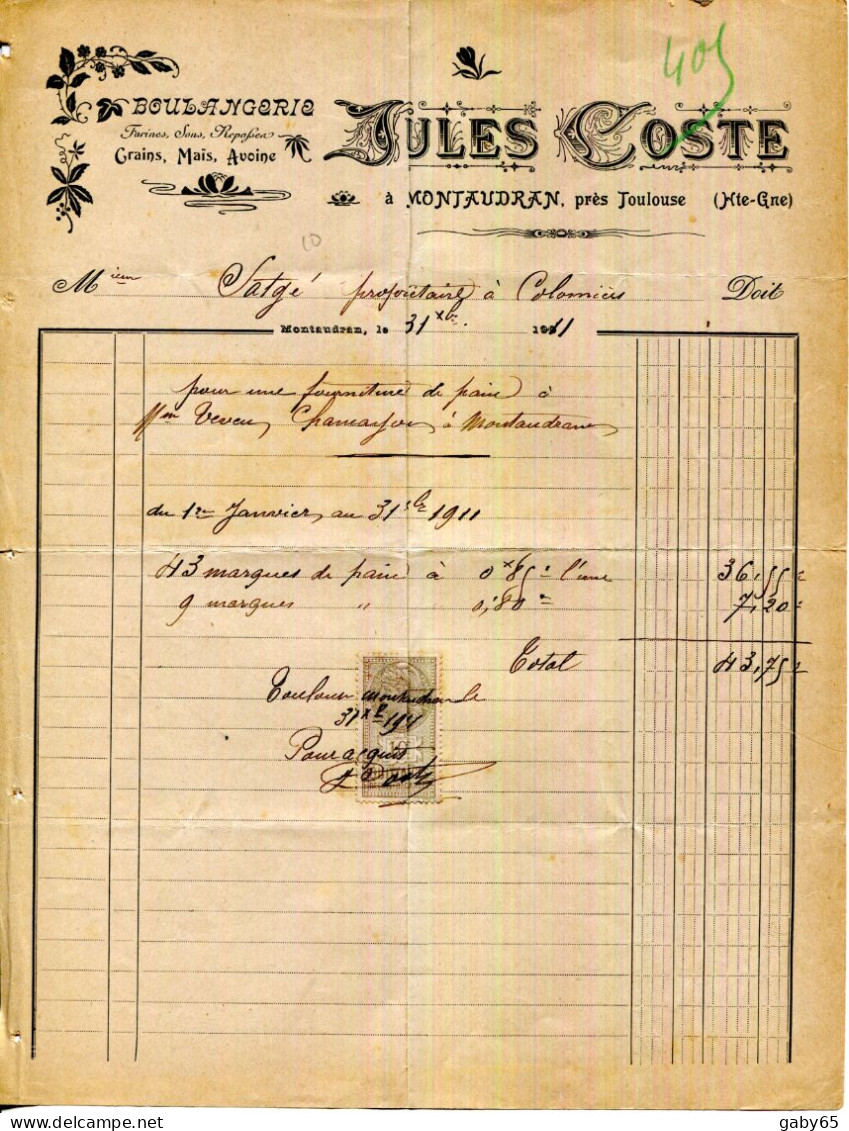 405
BOULANGERIE
Farines, Sons, Repasses
Grains, Maïs, Avoine
JULES COSTE
à MONTAUDRAN, près Toulouse (Hte-Gne)
10
Mieur Satgé propriétaire à Colomiers Doit
Montaudran, le 31 Xbre 1911
pour une fourniture de pain à
Veuve à Montaudran
du 1er Janvier au 31 Xbre 1911
43 marques de pain à 0f85c l'une 36,55c
9 marques " 0,80c 7,20c
Total 43,75c
Toulouse Montaudran le
31 Xbre 1911
Pour acquit
J Coste
gaby65